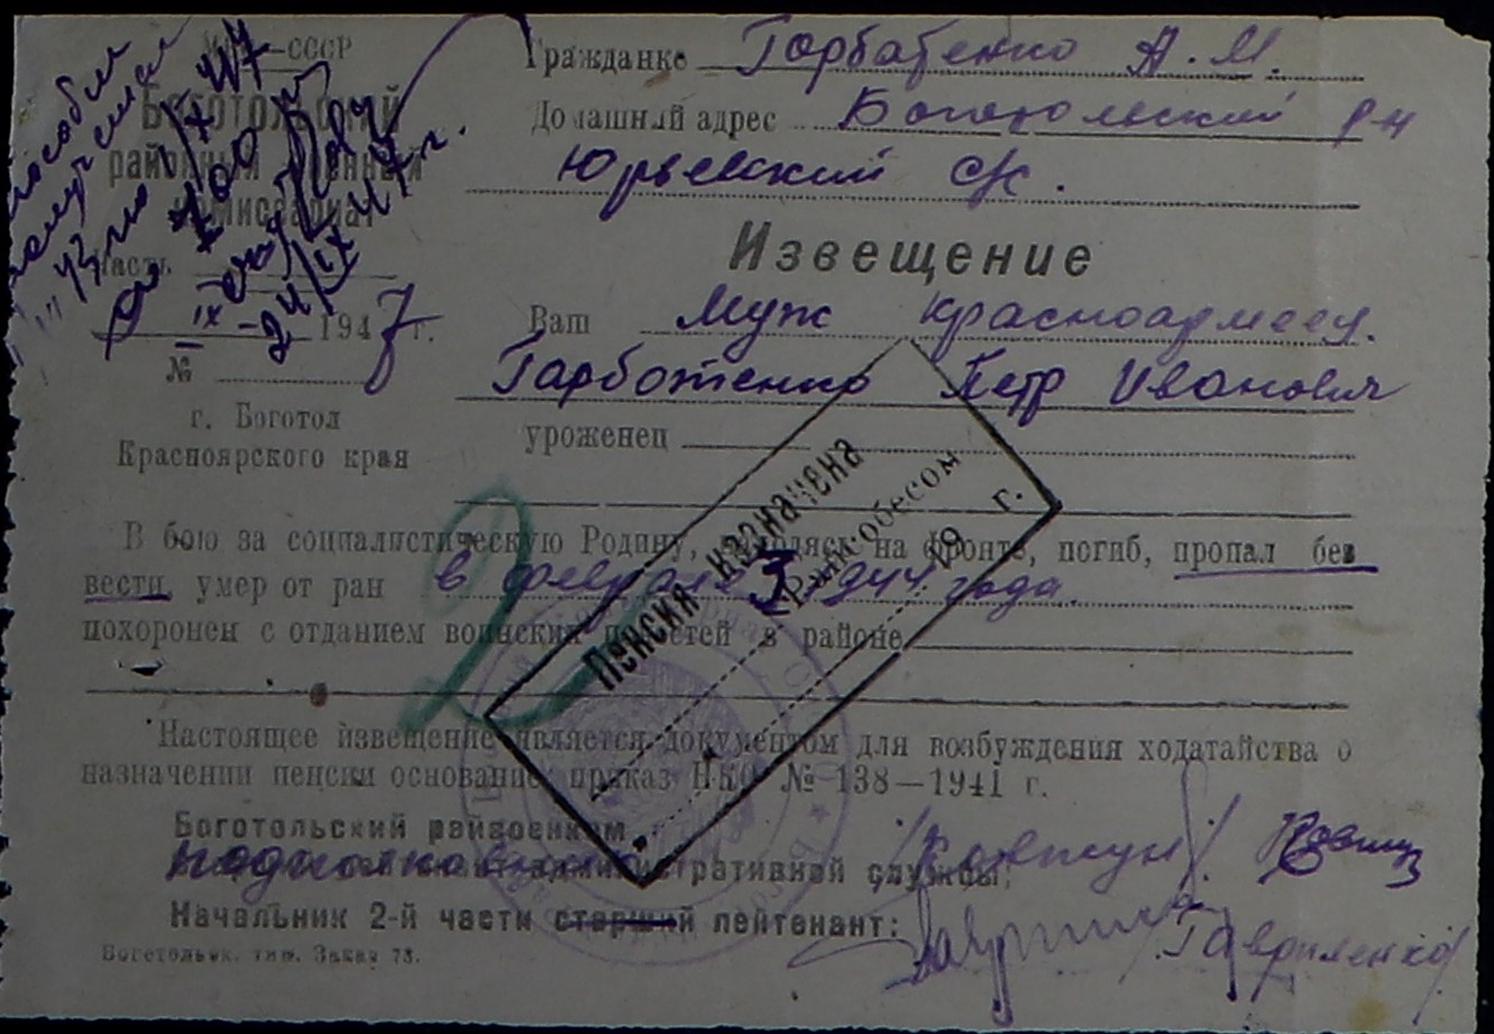 СССР
Боготольский
районный военный
комиссариат
Часть
1947 г.
№
г. Боготол
Красноярского края
Гражданке Горбатенко А. М.
Домашний адрес Боготольский р-н
Юрьевский с/с.
Извещение
Ваш муж красноармеец
Горботенко Петр Иванович
уроженец
В бою за социалистическую Родину, находясь на фронте, погиб, пропал без
вести, умер от ран в феврале 1944 года.
похоронен с отданием воинских почестей в районе
Настоящее извещение является документом для возбуждения ходатайства о
назначении пенсии основание: приказ НКО № 138—1941 г.
Боготольский райвоенком
административной службы: /Ковтун/
Начальник 2-й части старший лейтенант:
Гавриленко/
Боготольск. тип. Заказ 73.
Пенсия назначена
Райсобесом
19 г.